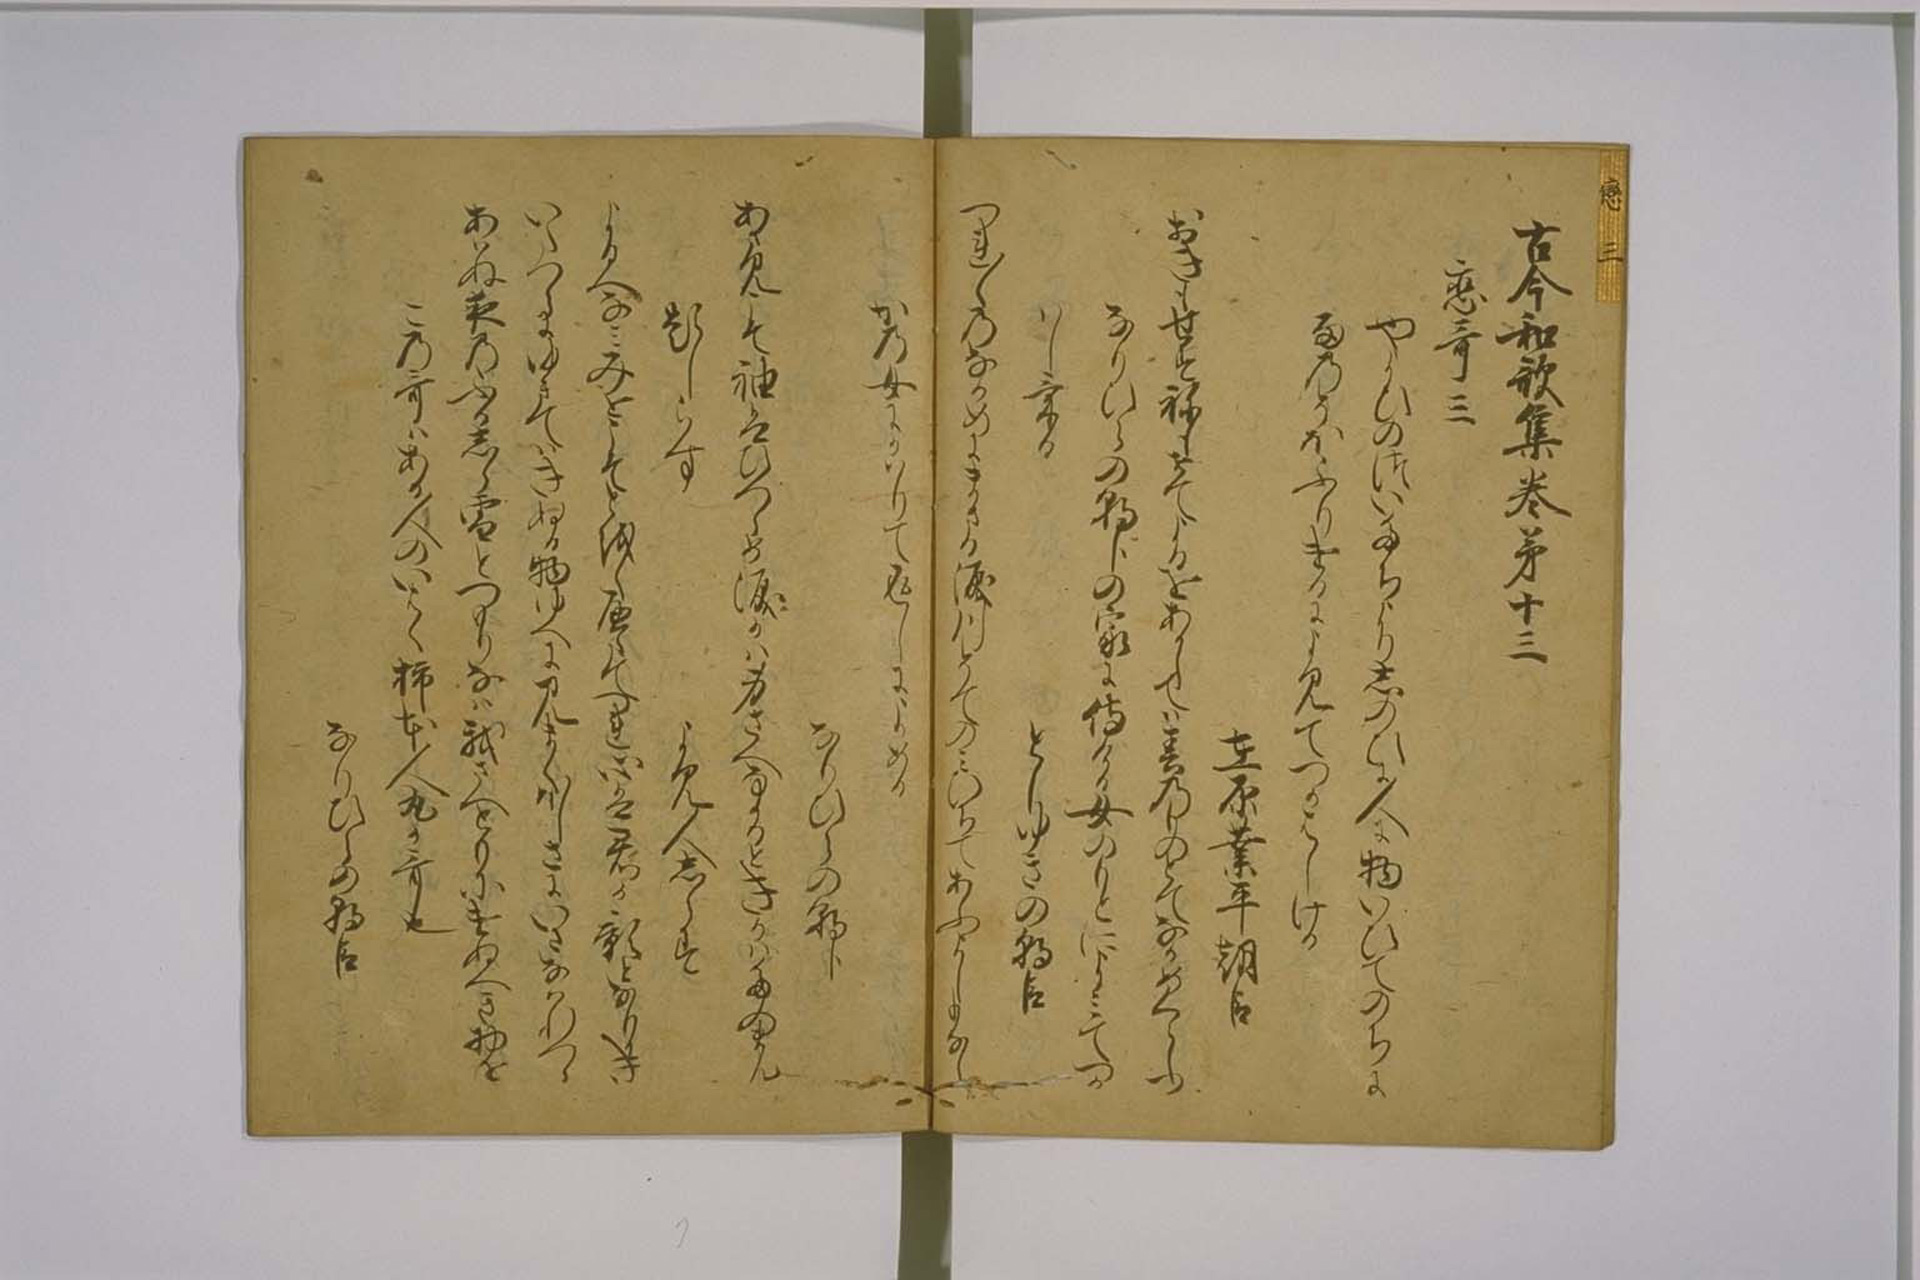 恋 三
古今和歌集巻第十三
恋哥三
やよひのついたちより志のひに人に物いひてのちに
雨のそほふりけるによみてつかはしける
在原業平朝臣
おきもせすねもせてよるをあかしては春のものとてなかめくらしつ
なりひらの朝臣の家に侍ける女のもとによみてつか
はしける
としゆきの朝臣
つれ／＼のなかめにまさる涙川そてのみひちてあふよしもなし
かの女にかはりて返しによめる
なりひらの朝臣
あさみこそ袖はひつらめ涙かは身さへなかるときかはたのまん
題しらす
よみ人志らす
よるへなみ身をこそとをくへたてつれ心は君か影となりにき
いたつらにゆきてはきぬる物ゆへに見まくほしさにいさなはれつゝ
あはぬ夜のふる志ら雪とつもりなは我さへともにけぬへき物を
この哥はある人のいはく柿本人丸か哥也
なりひらの朝臣